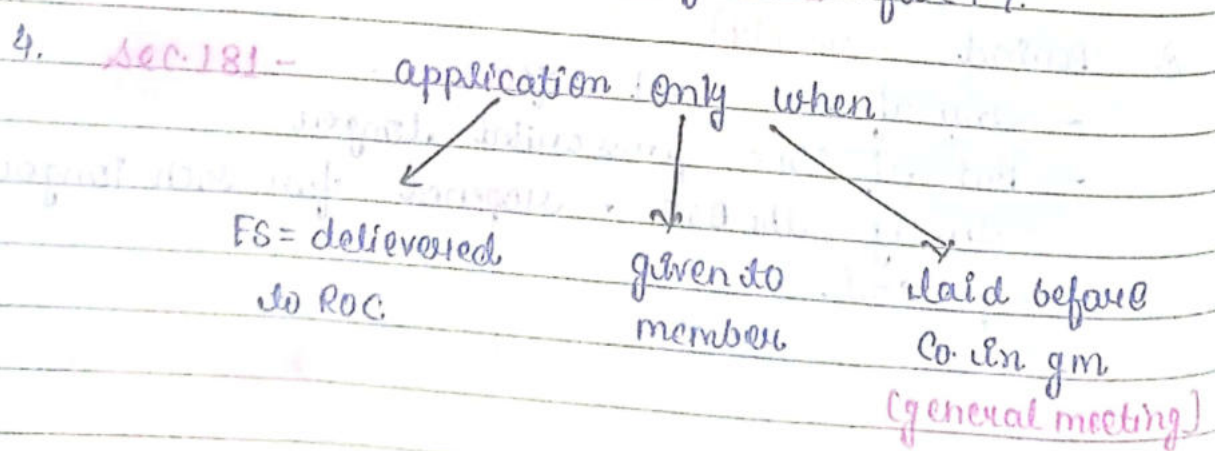 4. Sec. 181 - application only when
FS = delievered
to ROC
given to
member
laid before
Co. in gm
(general meeting)